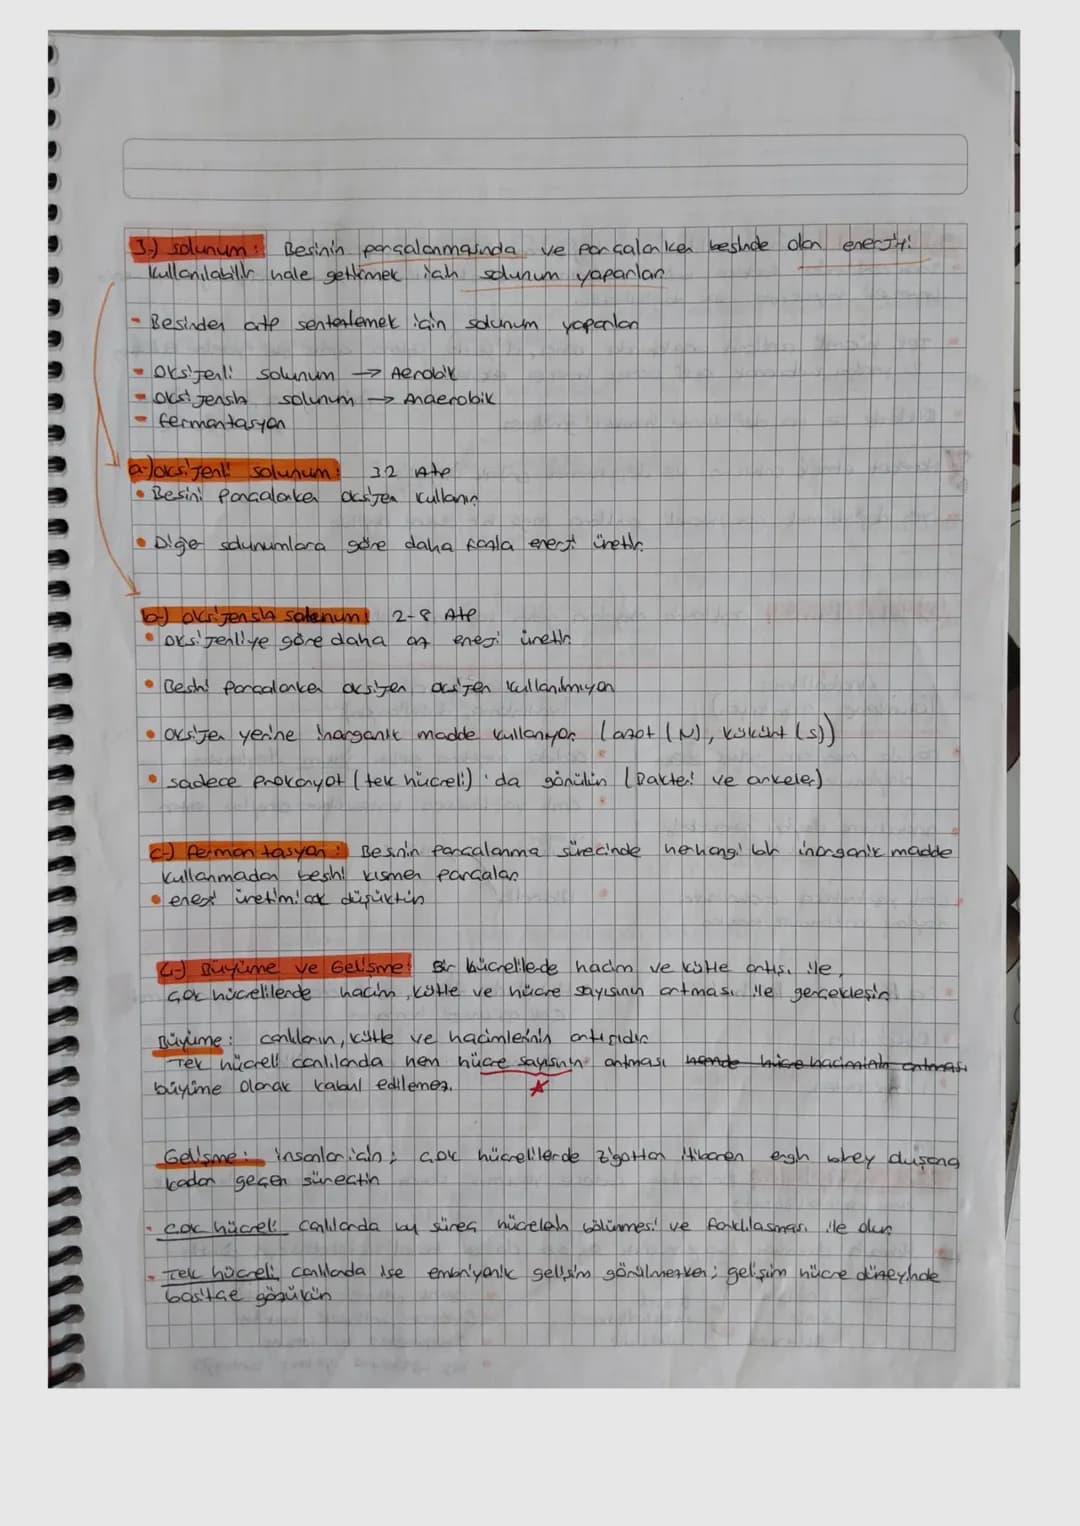 3-) solunum: Besinin parçalanmasında ve parçalarken besinde olan enerjiyi
kullanılabilir hale getirmek için solunum yaparlar.
- Besinden atp sentezlemek için solunum yaparlar
- oksijenli solunum → Aerobik
- oksijensiz solunum → Anaerobik
- fermantasyon
a-) oksijenli solunum: 32 Atp
• Besini Parçalarken oksijen kullanır.
• Diğer solunumlara göre daha fazla enerji üretir.
b-) oksijensiz solunum: 2-8 Atp
• oksijenliye göre daha az enerji üretir.
• Besini Parçalarken oksijen oksijen kullanılmıyor
• oksijen yerine inorganik madde kullanıyor. (azot (N), kükürt (s))
• sadece Prokaryot (tek hücreli) 'da görülür (Bakteri ve arkeler)
c-) fermantasyon: Besinin Parçalanma sürecinde herhangi bir inorganik madde
kullanmadan besini kısmen parçalar.
• enerji üretimi çok düşüktür.
4-) Büyüme ve Gelişme: Bir hücrelilerde hacim ve kütle artışı ile,
çok hücrelilerde hacim, kütle ve hücre sayısının artması ile gerçekleşir.
Büyüme: canlıların, kütle ve hacimlerinin artışıdır
Tek hücreli canlılarda hem hücre sayısının artması hemde hücre hacminin artması
büyüme olarak kabul edilemez.
Gelişme: insanlar için; çok hücrelilerde zigottan itibaren ergin birey
kadar geçen süreçtir
- çok hücreli canlılarda bu süreç hücrelerin bölünmesi ve farklılaşması ile olur.
- Tek hücreli canlılarda ise embriyonik gelişim görülmezken; gelişim hücre düzeyinde
basitçe gözükür